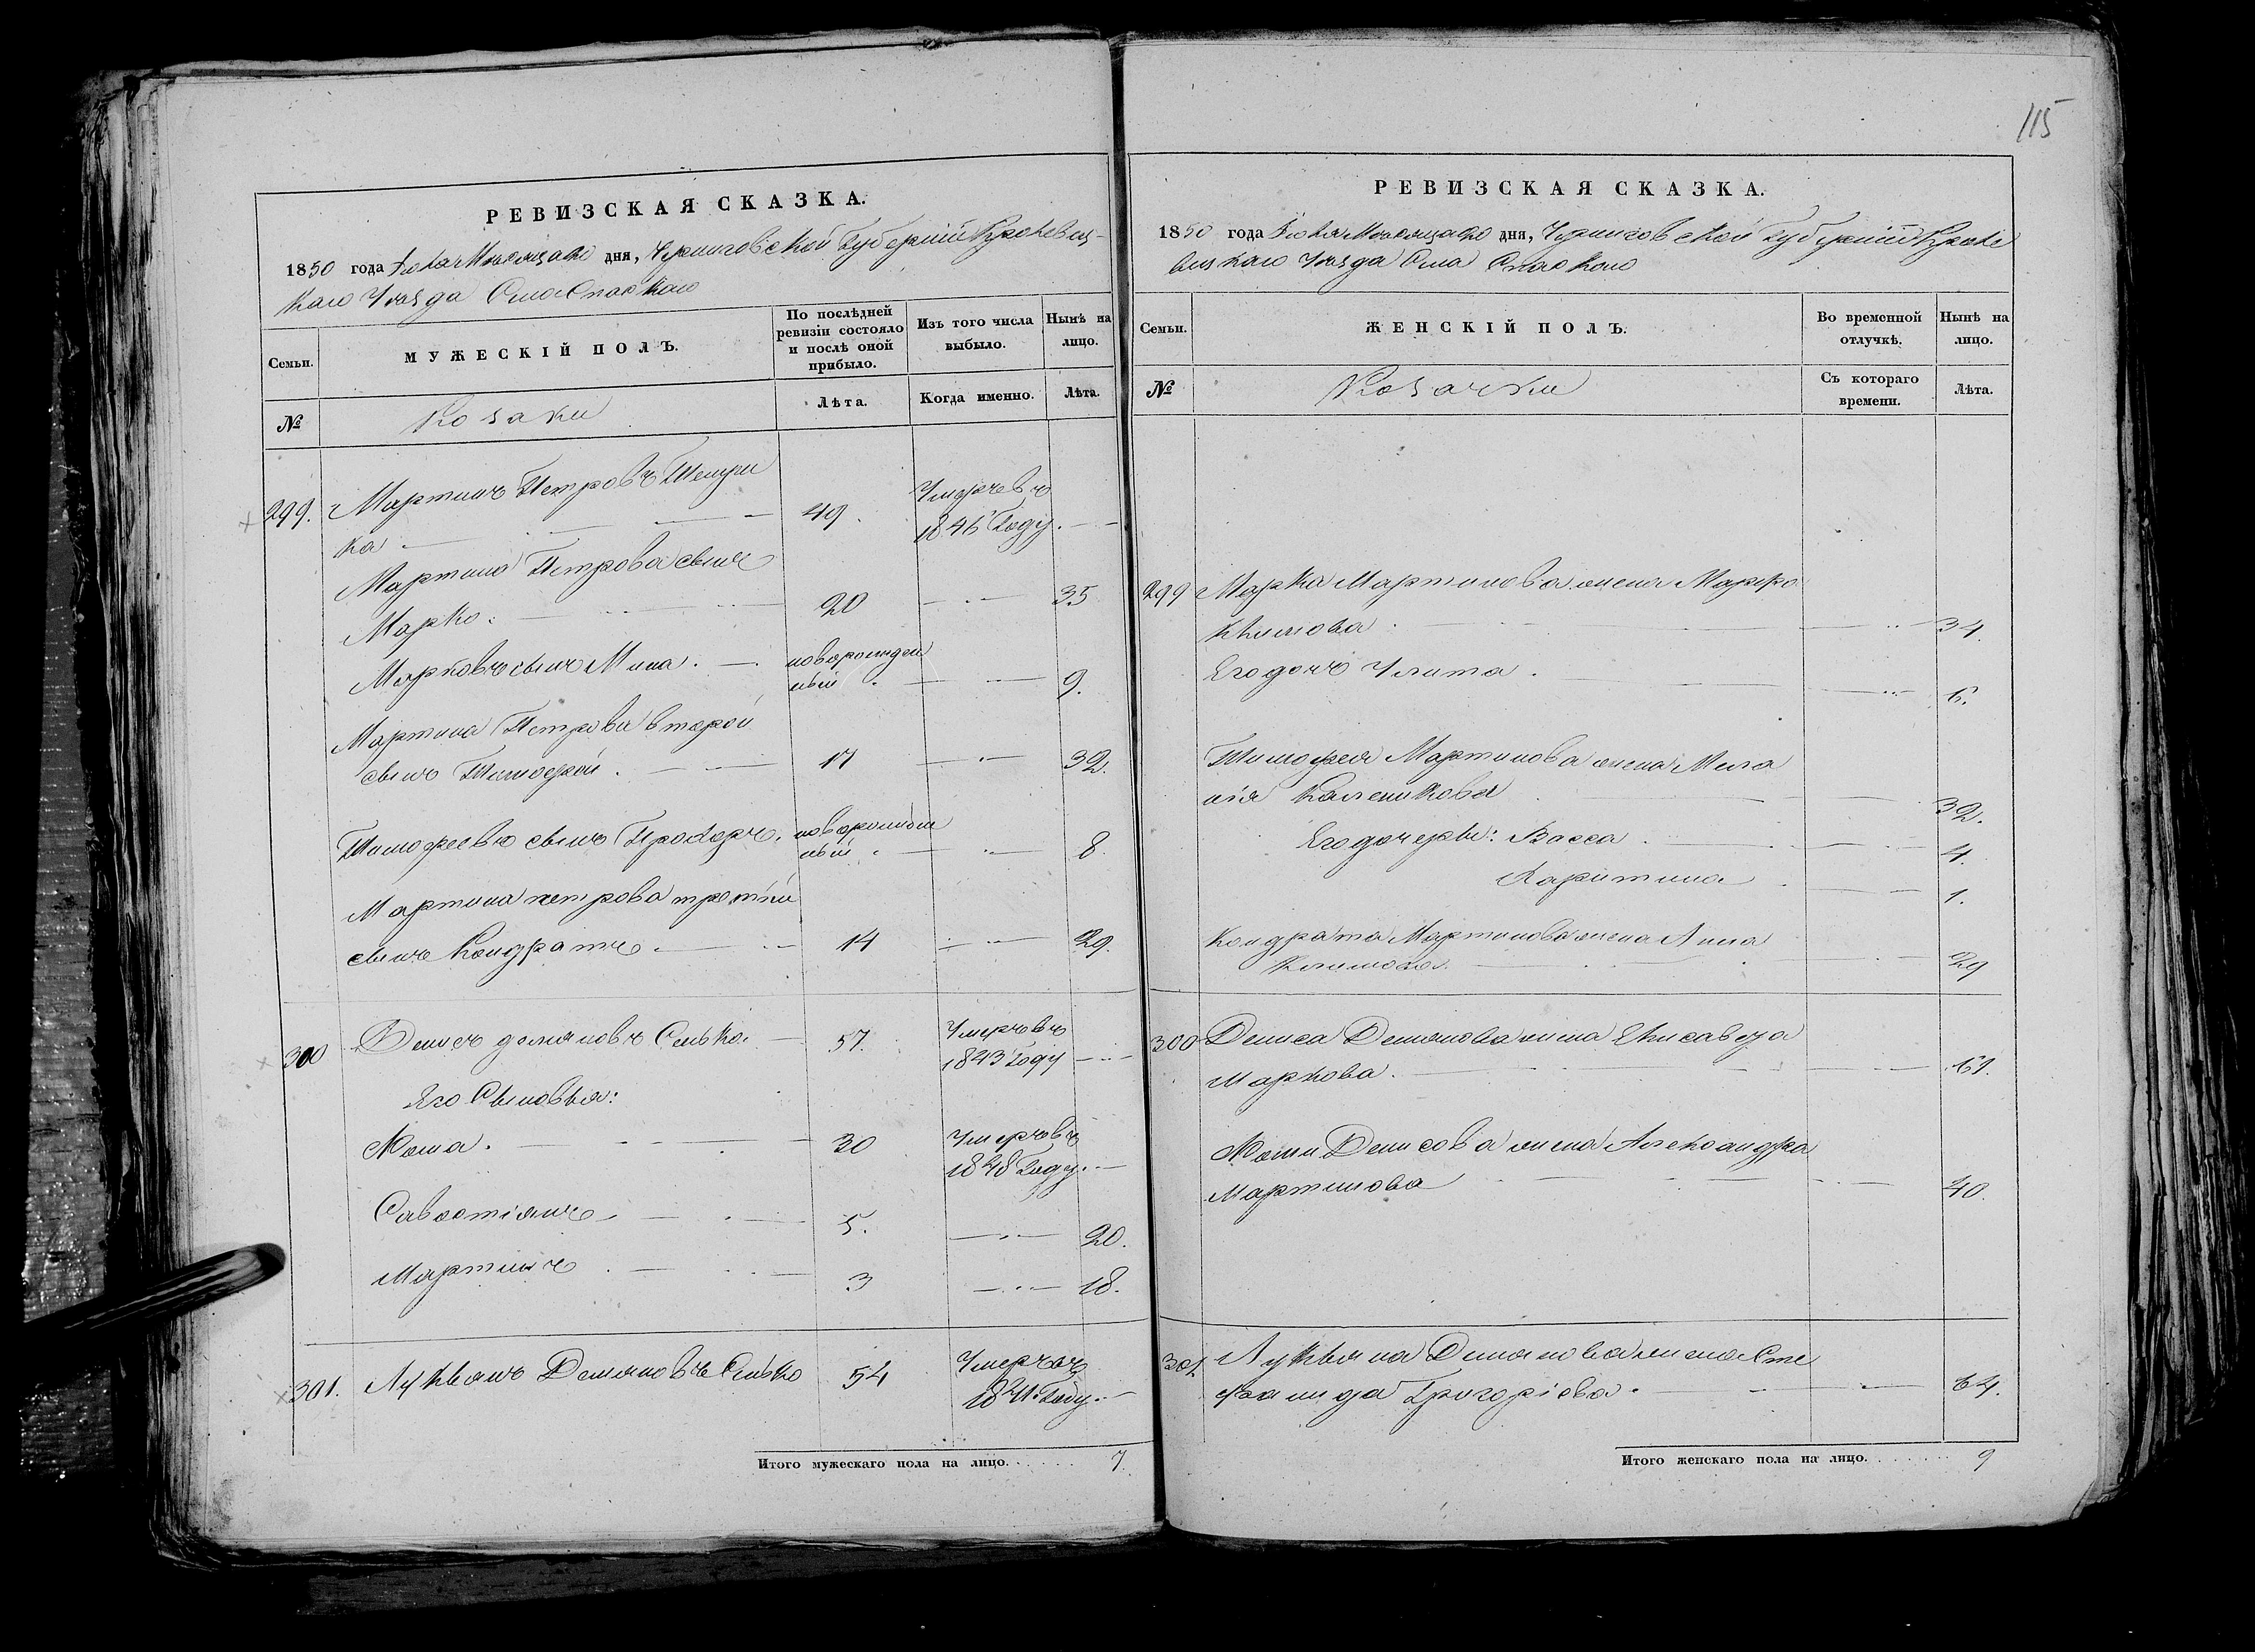 РЕВИЗСКАЯ СКАЗКА.
1850 года Мѣсяца дня, Черниговской Губерніи Кролевец-
каго Уѣзда Села Спаскаго
Семьи.
МУЖЕСКІЙ ПОЛЪ.
По послѣдней ревизіи состояло и послѣ оной прибыло.
Изъ того числа выбыло.
Нынѣ на лицо.
№
Козаки
Лѣта.
Когда именно.
Лѣта.
299. Мартинъ Петровъ
ка 49. Умерже въ 1846 Году.
Мартина Петрова сынъ
Марко. 20 35
Марковъ сынъ Мина. новорожден
ный 9.
Мартина Петрова второй
сынъ Тимофей. 17 32.
Тимофеевъ сынъ Прохоръ. новорожден
ный 8.
Мартина Петрова третій
сынъ Кондратъ 14 29.
300 Денисъ Демяновъ 57. Умеръ въ
1843 Году
Его Сыновья:
Хома. 30 Умеръ въ
1848 Году.
Савостіянъ 5. 20.
Мартинъ 3 18.
301. Лукьянъ Демяновъ 54 Умеръ въ
1841 Году.
Итого мужескаго пола на лицо. 7.
115
РЕВИЗСКАЯ СКАЗКА.
1850 года Мѣсяца дня, Черниговской Губерніи Кроле
вецкаго Уѣзда Села Спаскаго
Семьи.
ЖЕНСКІЙ ПОЛЪ.
Во временной отлучкѣ.
Нынѣ на лицо.
№
Козачки
Съ котораго времени.
Лѣта.
299 Марка Мартинова жена
Климова. 34.
Его дочь Улита. 6.
Тимофея Мартинова жена Мела
нія Каленикова 32.
Его дочери: Васса. 4.
Харитина 1.
Кондрата Мартинова жена Анна
Климова. 29
300 Дениса Демянова жена Елисавета
Маркова. 61.
Хоми Денисова жена Александра
Мартинова 40.
301. Лукьяна Демянова жена Сте
фанида Григоріева. 64.
Итого женскаго пола на лицо. 9